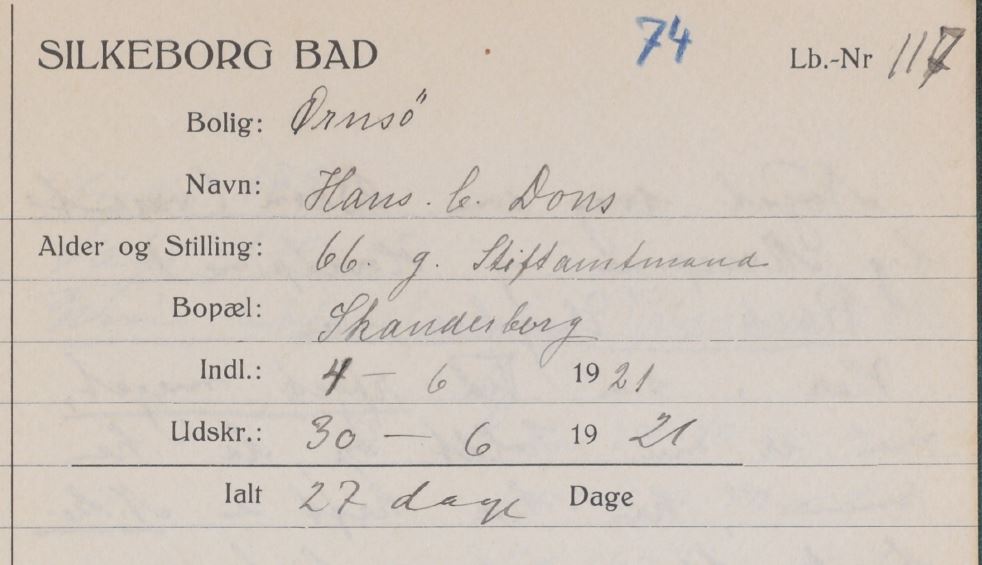 SILKEBORG BAD 74 Lb.-Nr 117
Bolig: Ørnsö
Navn: Hans. C. Dons
Alder og Stilling: 66. g. Stiftamtmand
Bopæl: Skanderborg
Indl.: 4 – 6 1921
Udskr.: 30 – 6 19 21
Ialt 27 dage Dage